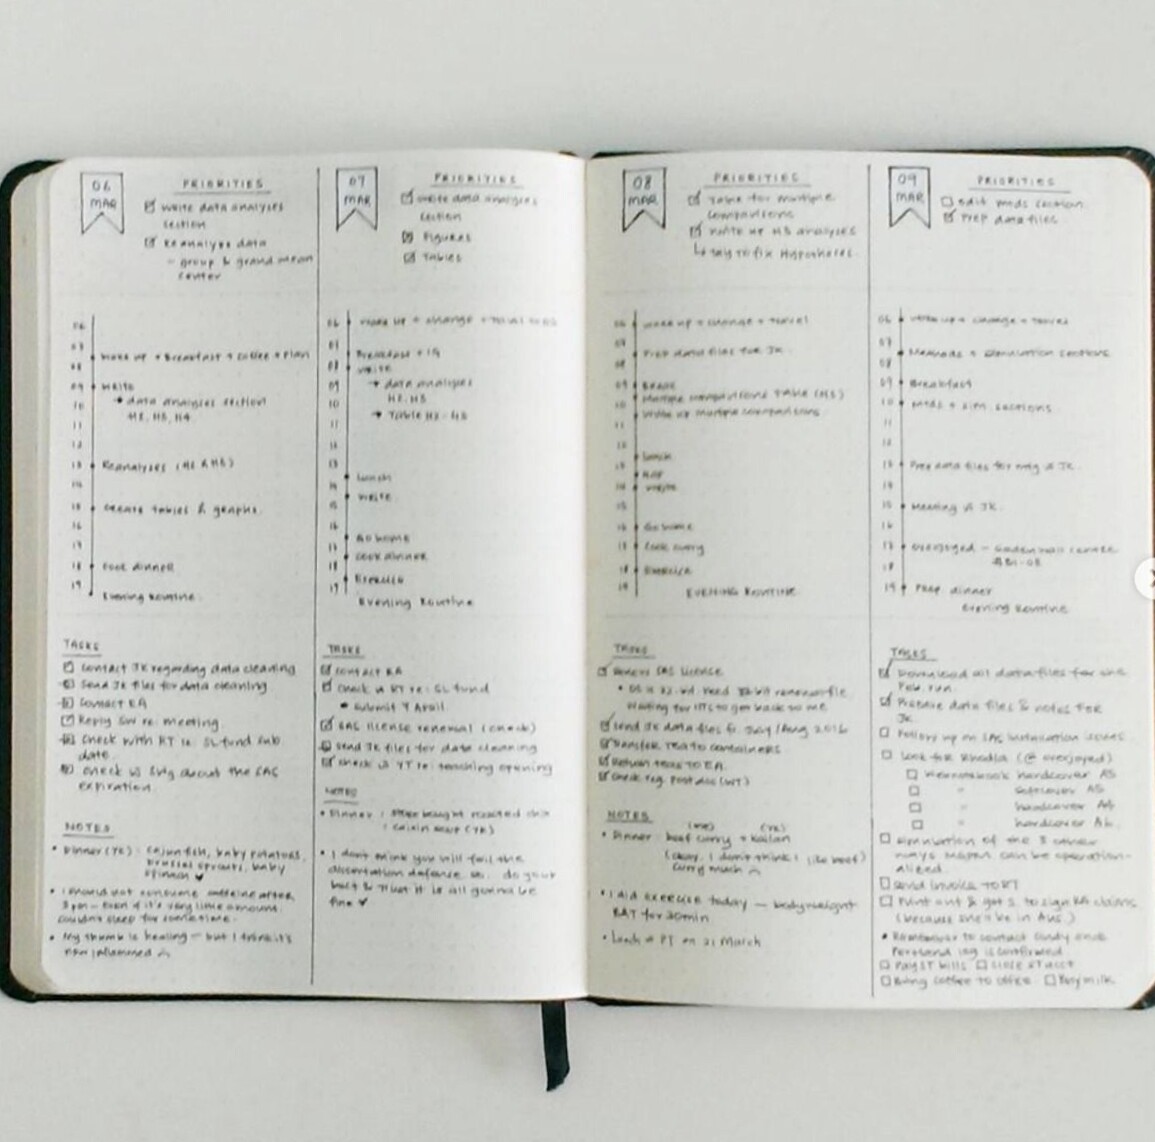 06
MAR
PRIORITIES
write data analyses
section
Reanalyse data
- group & grand mean
center
06
07
wake up + Breakfast + coffee + plan
08
09 write
→ data analyses section
10
H2, H3, H4
11
12
13 Reanalyses
14
15 create tables & graphs
16
17
18 cook dinner
19
Evening Routine
TASKS
contact JK regarding data cleaning
Send JK files for data cleaning
Contact RA
Reply SW re: meeting
Check with RT re: SL fund sub
date.
check w about the SAS
expiration.
NOTES
• Dinner (TC): cajun fish, baby potatoes,
brussel sprouts, baby
spinach
• I should not consume caffeine after
3pm - even if it's very little amount.
couldn't sleep for some time.
• My thumb is healing - but I think it's
now inflamed
07
MAR
PRIORITIES
write data analyses
section
Figures
Tables
06 wake up + change + travel to
07
Breakfast +
08 write
09 → data analyses
H2, H3
10
→ Table H2 - H3
11
12
13
lunch
14
write
15
16
Go home
17
cook dinner
18
Exercise
19
Evening Routine
TASKS
contact RA
check w RT re: SL fund
• submit
SAS license renewal (check)
send JK files for data cleaning
check w YT re: teaching opening
NOTES
• Dinner: bought roasted
• I don't think you will fail the
dissertation defense so, do your
best & trust it is all gonna be
fine
08
MAR
PRIORITIES
Table for multiple
comparisons
write up H3 analyses
↳ try to fix hypotheses
06 wake up + change + travel
07
Prep data files for JK
08
09
Multiple comparisons table (H3)
10
write up multiple comparisons
11
12
lunch
13
nap
14 write
15
16 Go home
17 cook curry
18 Exercise
19
EVENING ROUTINE
TASKS
Renew SAS license
waiting for to get back to me
send JK data files for July/Aug 2016
Transfer teas to containers
Return to RA
check reg. post doc (WT)
NOTES
• Dinner beef curry + kailan
(okay, I don't think I like beef
curry much
• I did exercise today — bodyweight
for 30min
• Lunch w PT on 21 March
09
MAR
PRIORITIES
Edit mtds section
Prep data files
06 wake up + change + travel
07
Methods + simulation sections
08
09 Breakfast
10 Mtds + sim. sections
11
12
13 Prep data files for mtg w JK
14
15 Meeting w JK
16
17 overjoyed -
18
19 Prep dinner
Evening Routine
TASKS
Download all data files for the
run
Prepare data files & notes for
JK
Follow up on SAS installation issues
Look for Rhodia (@ overjoyed)
hardcover A5
" softcover A5
" hardcover
" hardcover
Simulation of the 3 other
ways can be operation-
alized.
Send invoice to RT
Print out & get S to sign RA claims
(because she'll be in Aus.)
• Remember to contact once
is confirmed
Pay ST bills
Bring coffee to office Buy milk